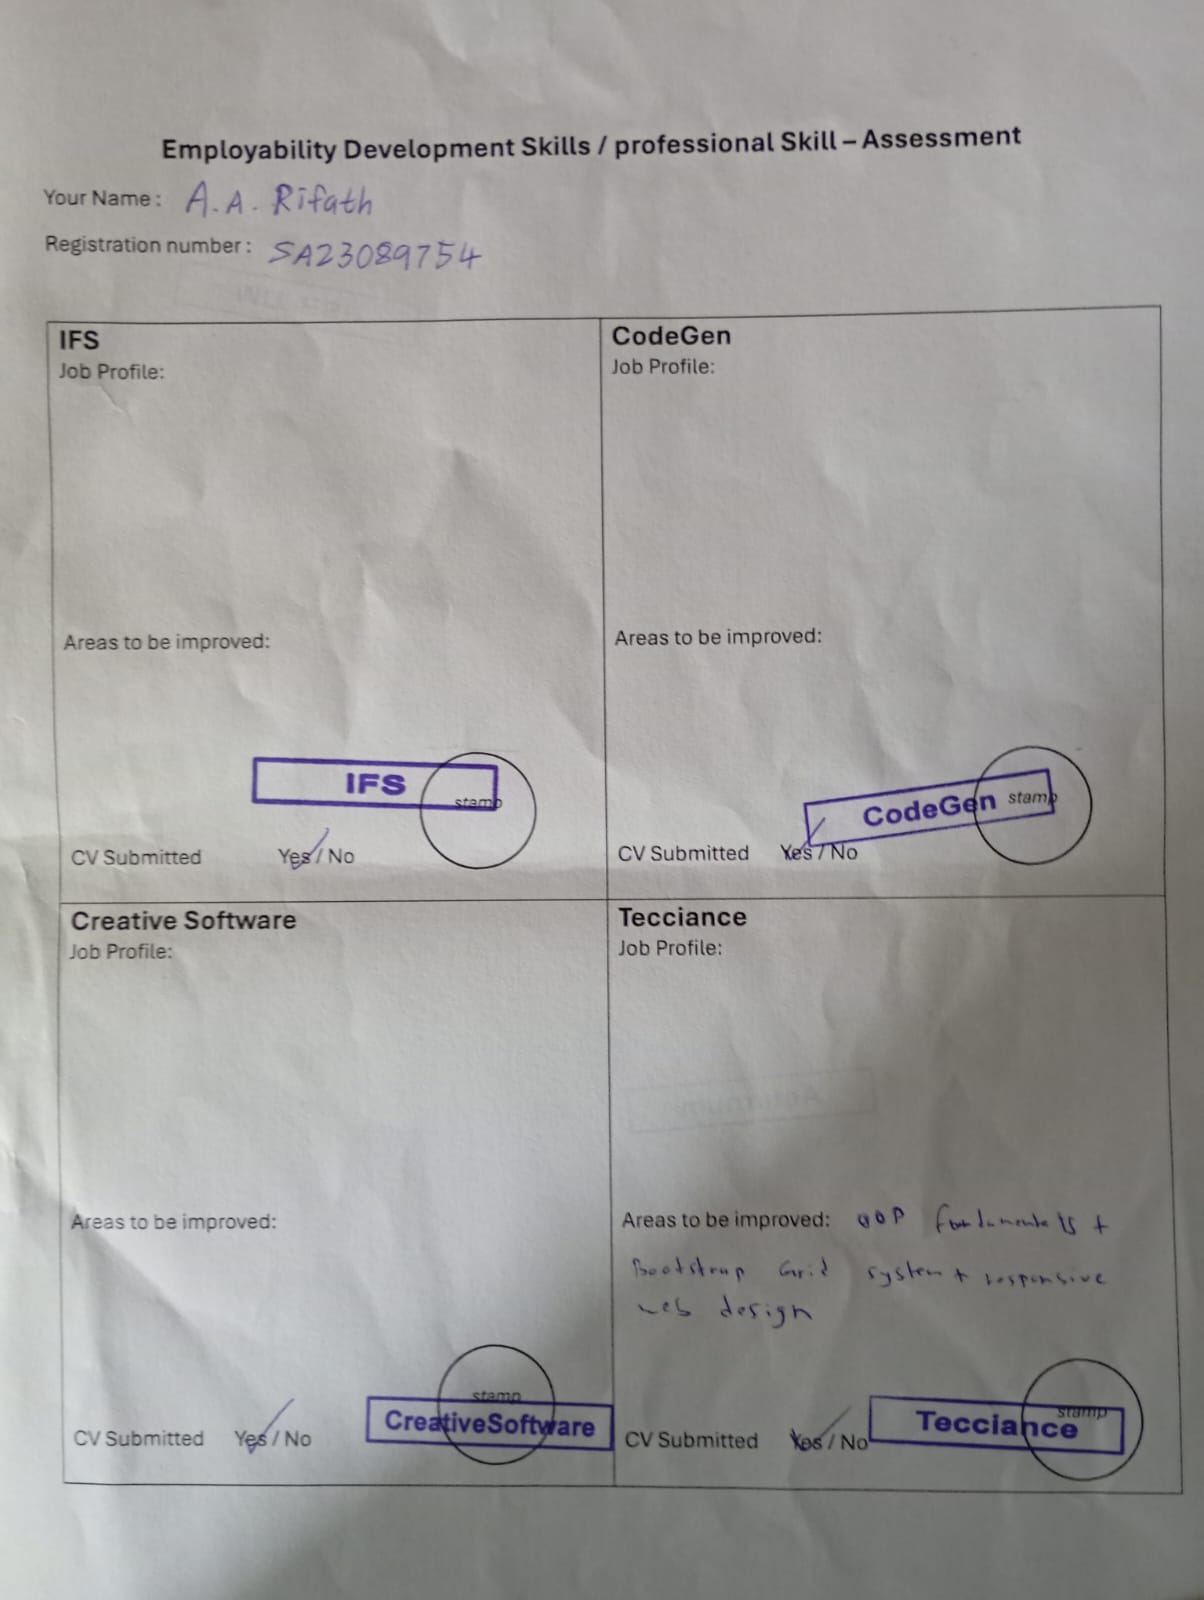 Employability Development Skills / professional Skill – Assessment
Your Name : A.A. Rifath
Registration number : SA23089754
IFS
Job Profile:
Areas to be improved:
IFS
stamp
CV Submitted Yes / No
CodeGen
Job Profile:
Areas to be improved:
CodeGen
stamp
CV Submitted Yes / No
Creative Software
Job Profile:
Areas to be improved:
stamp
CreativeSoftware
CV Submitted Yes / No
Tecciance
Job Profile:
Areas to be improved: OOP fundamentals +
Bootstrap Grid system + responsive
web design
stamp
Tecciance
CV Submitted Yes / No